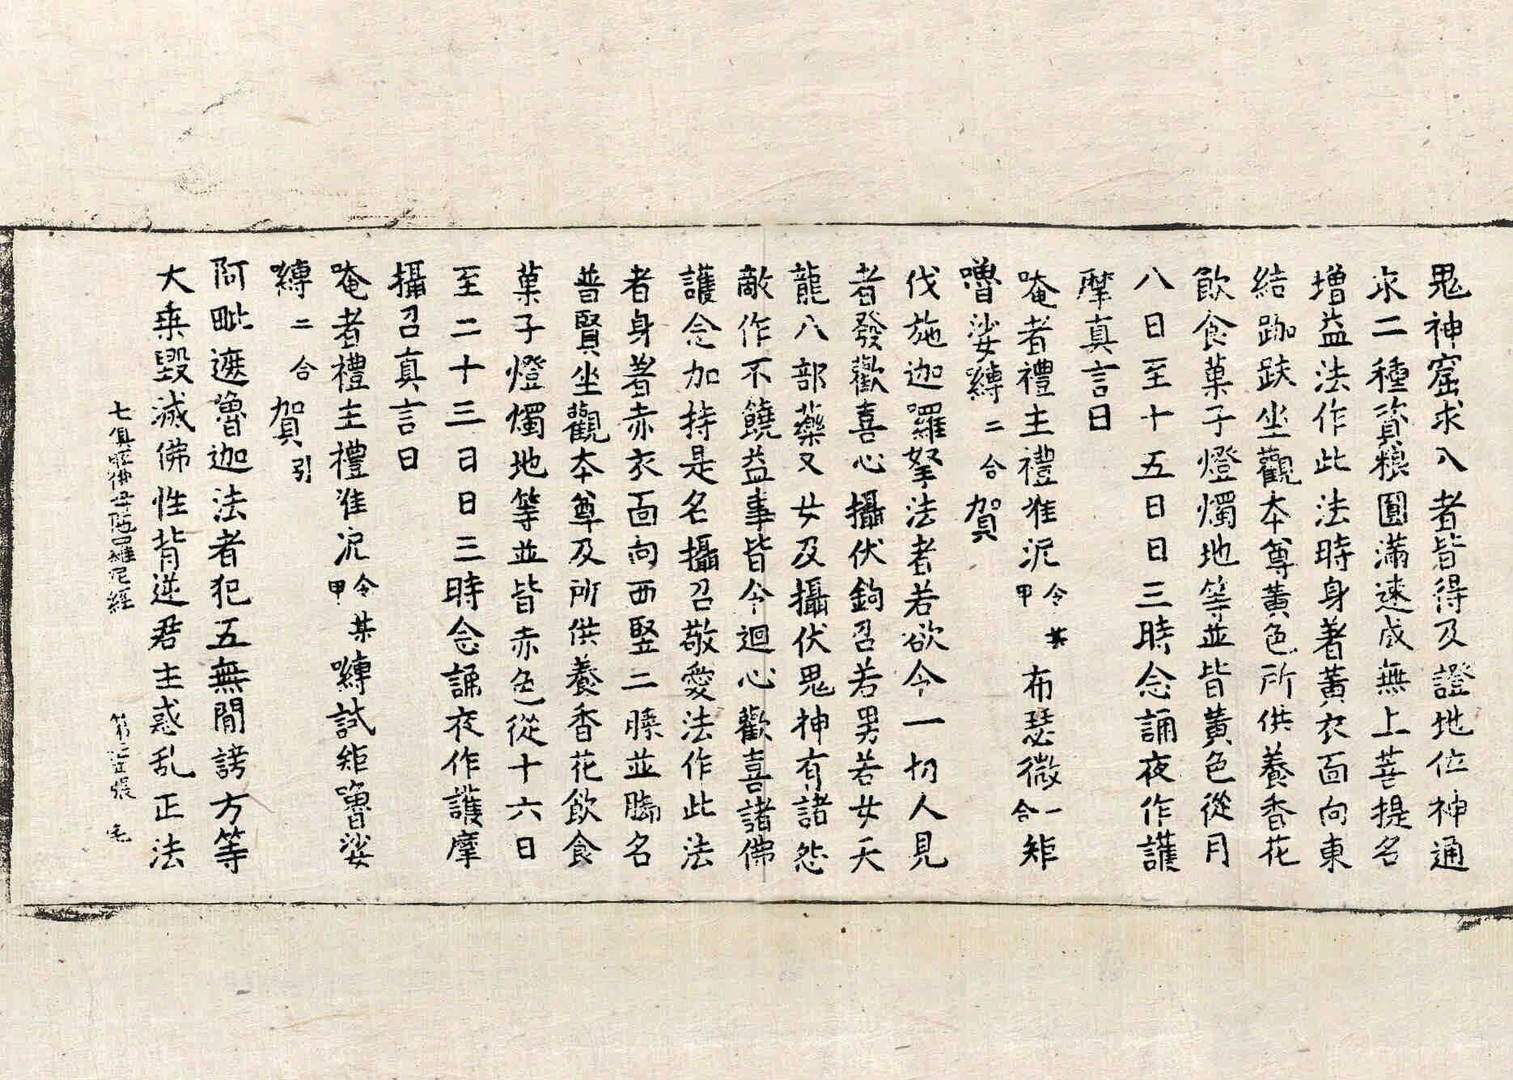 鬼神窟求入者皆得及證地位神通
求二種資粮圓滿速成無上菩提名
增益法作此法時身著黃衣面向東
結跏趺坐觀本尊黃色所供養香花
飲食菓子燈燭地等並皆黃色從月
八日至十五日日三時念誦夜作護
摩真言曰
唵者禮主禮准泥 令 某 甲 布瑟微 一 合 矩
嚕娑縛 二 合 賀
伐施迦羅拏法者若欲令一切人見
者發歡喜心攝伏鉤召若男若女天
龍八部藥叉女及攝伏鬼神有諸怨
敵作不饒益事皆令迴心歡喜諸佛
護念加持是名攝召敬愛法作此法
者身著赤衣面向西竪二膝並腳名
普賢坐觀本尊及所供養香花飲食
菓子燈燭地等並皆赤色從十六日
至二十三日日三時念誦夜作護摩
攝召真言曰
唵者禮主禮准泥 令 某 甲 嚩試矩嚕娑
嚩 二 合 賀 引
阿毗遮嚕迦法者犯五無間謗方等
大乘毀滅佛性背逆君主惑乱正法
七俱胝佛母陁羅尼經